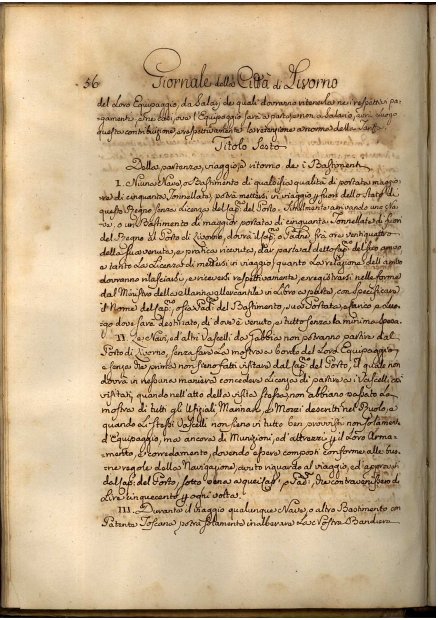 56 Giornale della Città di Livorno
del Loro Equipaggio, da Salarj de quali dovranno ritenerla ne i rispettivi pa-
gamenti, e ne casi, ove l'Equipaggio sarà a parte, e non a salario, avrà luogo
questa contribuzione, e respettivamente la retenzione a norma delle
Titolo Sesto
Della partenza, viaggio, e ritorno de i Bastimenti
I. Niuna Nave, o Bastimento di qualsisia qualità di portata maggio-
re di cinquanta Tonnellate, potrà mettersi in viaggio, fuori dello Stato di
questo Regno senza Licenza del Cap.º del Porto. Similmente arrivando una Na-
ve, o un Bastimento di maggior portata di cinquanta Tonnellate di fuori
del Regno al Porto di Livorno, dovrà il Cap.º o Padne frà ore ventiquattro
della sua venuta, e pratica ricevuta, dar parte al detto Cap.º del suo arrivo
e tanto la Licenza di mettersi in viaggio, quanto la relazione dell'arrivo
dovranno rilasciarsi, e riceversi respettivamente, e registrarsi nelle forme
dal Ministro della Marina Mercantile in Libro a parte, con specificare
il Nome del Cap.º, o sia Pad.ⁿ del Bastimento, sua Portata, e carico, e Luo-
go dove sarà destinato, di dove è venuto, e tutto senza la minima spesa.
II. Le Navi, ed altri Vascelli da Gabbia non potranno partire dal
Porto di Livorno, senza fare la mostra a bordo del Loro Equipaggio,
e senza che prima non sieno fatti visitare dal Cap.º del Porto, il quale non
dovrà in nessuna maniera concedere Licenza di partire a i Vascelli, così
visitati, quando nell'atto della visita stessa non abbiano passato la
mostra di tutti gli Ufiziali Marinari, e Mozzi descritti nel Ruolo, e
quando li stessi Vascelli non sieno in tutto ben provvisti non solamente
d'Equipaggio, ma ancora di Munizioni, ed attrezzi per il Loro Arma-
mento, e corredamento, dovendo essere composti conforme alle buo-
ne regole della Navigazione, avuto riguardo al viaggio, ed approvaz.
del Cap.º del Porto, sotto pena a quei Cap.ⁱ, o Pad.ⁱ, che contravvenissero di
Lire cinquecento per ogni volta.
III. Durante il viaggio qualunque Nave, o altro Bastimento con
Patente Toscana potrà solamente inalberare la Nostra Bandiera